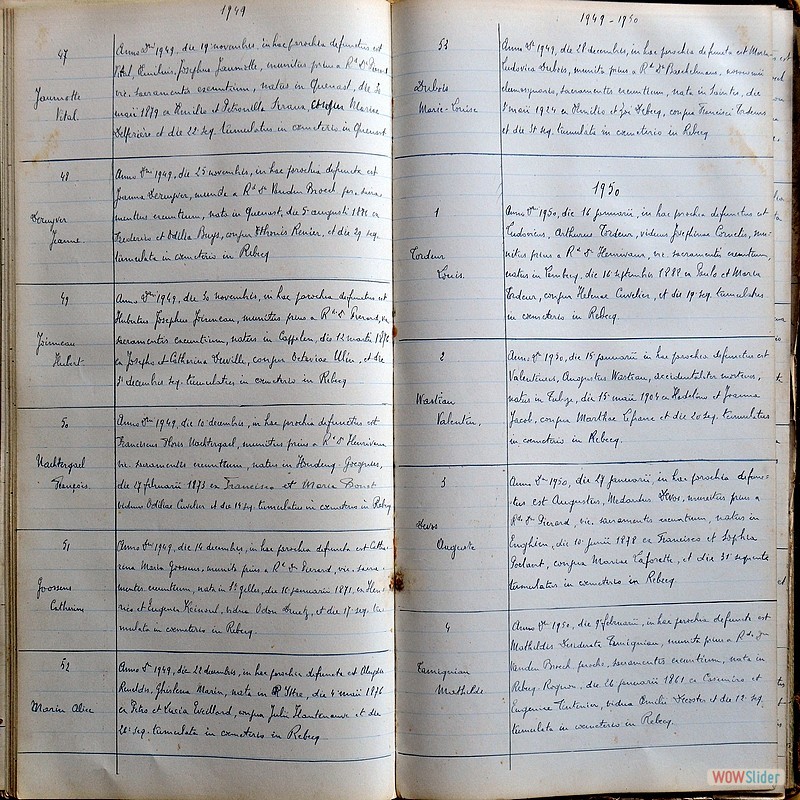 1949
47
Jaumotte
Vital
Anno Dni 1949, die 19 novembris, in hac parochia defunctus est
Vital, Aemilius, Josephus Jaumotte, munitus prius a Rdo Do Pierard
vic. sacramentis exeuntium, natus in Quenast, die
maii 1879 ex Aemilio et Petronella
et die 22 seq. tumulatus in cœmeterio in Quenast
48
Deruyver
Jeanne
Anno Dni 1949, die 25 novembris, in hac parochia defuncta est
Joanna Deruyver, munita a Rdo Do Vanden Broeck par. sacra
mentis exeuntium, nata in Quenast, die 5 augusti 1886 ex
Frederico et Odilia Buys, conjux Renier, et die 29 seq.
tumulata in cœmeterio in Rebecq
49
Joineau
Hubert
Anno Dni 1949, die 30 novembris, in hac parochia defunctus est
Hubertus Josephus Joineau, munitus prius a Rdo Do Pierard, vic.
sacramentis exeuntium, natus in die 12 martii
ex Josepho et Catherina conjux Octavia et die
3 decembris seq. tumulatus in cœmeterio in Rebecq
50
Nachtergael
François
Anno Dni 1949, die 10 decembris, in hac parochia defunctus est
Franciscus Floris Nachtergael, munitus prius a Rdo Do Hennivaux
vic. sacramentis exeuntium, natus in Houdeng-Goegnies,
die 17 februarii 1873 ex Francisco et Maria
viduus Odiliae Cuvelier et die 14 seq. tumulatus in cœmeterio in Rebecq
51
Goossens
Catherine
Anno Dni 1949, die 14 decembris, in hac parochia defuncta est Cathe
rina Maria Goossens, munita prius a Rdo Do Pierard, vic. sacra
mentis exeuntium, nata in St Gilles, die 16 januarii 1871, ex Hen
rico et Eugenia vidua Odon et die 17 seq. tu
mulata in cœmeterio in Rebecq.
52
Marin Alice
Anno Do 1949, die 22 decembris, in hac parochia defuncta est
Ghislena Marin, nata in Ittre, die 4 maii 1876
ex Petro et Lucia conjux Julii Hautenauve et die
26 seq. tumulata in cœmeterio in Rebecq
1949-1950
53
Dubois
Marie-Louise
Anno Do 1949, die 28 decembris, in hac parochia defuncta est Maria
Ludovica Dubois, munita prius a Rdo Do
sacramentis exeuntium, nata in Saintes, die
1 maii 1924 ex Aemilio et Zoé Debecq, conjux Francisci Cordeur
et die 31 seq. tumulata in cœmeterio in Rebecq
1950
1
Tordeur
Louis.
Anno Dni 1950, die 16 januarii, in hac parochia defunctus est
Ludovicus, Arthurus Tordeur, viduus Josephinae Cornelis, mu
nitus prius a Rdo Do Hennivaux, vic. sacramentis exeuntium,
natus in die 16 septembris 1888 ex Paulo et Maria
Tordeur, conjux Helenae Cuvelier, et die 19 seq. tumulatus
in cœmeterio in Rebecq.
2
Wastiau
Valentin.
Anno Dni 1950, die 15 januarii in hac parochia defunctus est
Valentinus, Augustus Wastiau, accidentaliter mortuus,
natus in Tubize, die 15 maii 1904 ex Adelino et Joanna
Jacob, conjux Marthae Lepane et die 20 seq. tumulatus
in cœmeterio in Rebecq.
3
Devos
Auguste
Anno Do 1950, die 27 januarii, in hac parochia defunc
tus est Augustus, Medardus Devos, munitus prius a
Rdo Do Pierard, vic. sacramentis exeuntium, natus in
Enghien, die 10 junii 1878 ex Francisco et Sophia
conjux Mariae Laforette, et die 31 sequente
tumulatus in cœmeterio in Rebecq.
4
Tamigniau
Mathilde
Anno Do 1950, die 9 februarii, in hac parochia defuncta est
Mathildis Desiderata Tamigniau, munita prius a Rdo Do
Vanden Broeck paroch. sacramentis exeuntium, nata in
Rebecq-Rognon, die 26 januarii 1861 ex Casimiro et
Eugenia vidua Aemilii Decoster et die 12 seq.
tumulata in cœmeterio in Rebecq.
WOWSlider